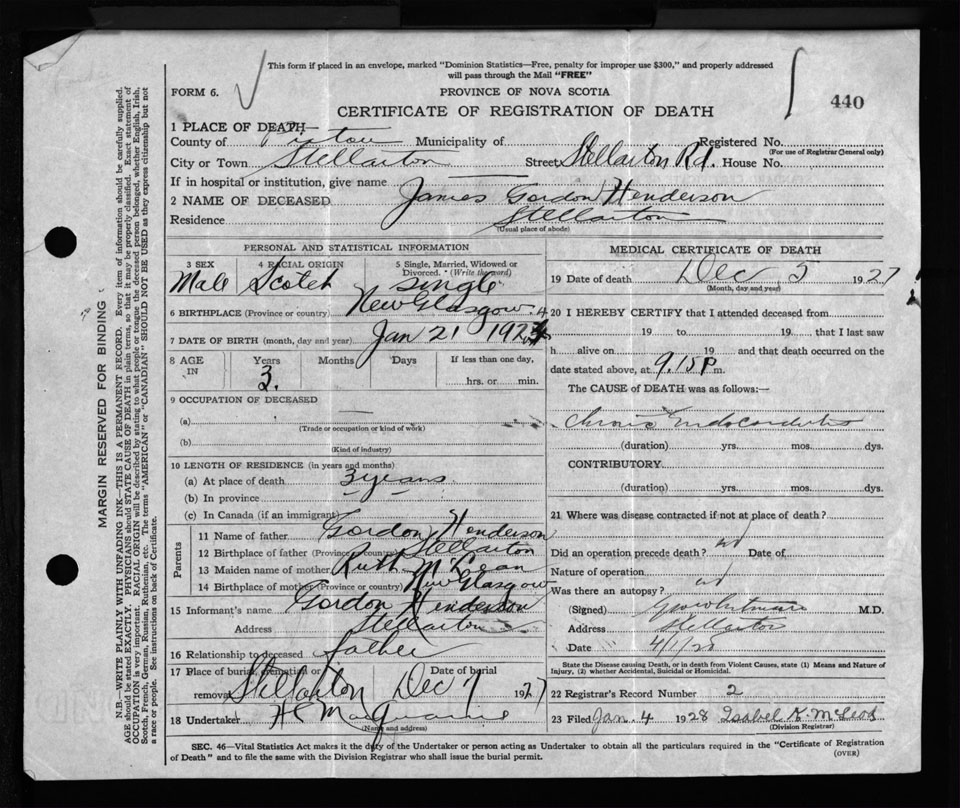 This form if placed in an envelope, marked "Dominion Statistics—Free, penalty for improper use $300," and properly addressed
will pass through the Mail "FREE"
FORM 6.
PROVINCE OF NOVA SCOTIA
440
CERTIFICATE OF REGISTRATION OF DEATH
1 PLACE OF DEATH
County of Pictou Municipality of Registered No.
(For use of Registrar General only)
City or Town Stellarton Street Stellarton Rd. House No.
If in hospital or institution, give name
2 NAME OF DECEASED James Gordon Henderson
Residence Stellarton
(Usual place of abode)
PERSONAL AND STATISTICAL INFORMATION
3 SEX 4 RACIAL ORIGIN 5 Single, Married, Widowed or
Divorced. (Write the word)
Male Scotch Single
6 BIRTHPLACE (Province or country) New Glasgow
7 DATE OF BIRTH (month, day and year) Jan 21 1924
8 AGE IN Years Months Days If less than one day,
3 hrs. or min.
9 OCCUPATION OF DECEASED
(a)
(Trade or occupation or kind of work)
(b)
(Kind of industry)
10 LENGTH OF RESIDENCE (in years and months)
(a) At place of death 3 years
(b) In province
(c) In Canada (if an immigrant)
Parents
11 Name of father Gordon Henderson
12 Birthplace of father (Province or country) Stellarton
13 Maiden name of mother Ruth McLean
14 Birthplace of mother (Province or country) New Glasgow
15 Informant's name Gordon Henderson
Address Stellarton
16 Relationship to deceased Father
17 Place of burial, cremation or Date of burial
removal Stellarton Dec 7 1927
18 Undertaker
(Name and address)
MEDICAL CERTIFICATE OF DEATH
19 Date of death Dec 5 1927
(Month, day and year)
20 I HEREBY CERTIFY that I attended deceased from
19 to 19 that I last saw
h alive on 19 and that death occurred on the
date stated above, at 9.15 P m.
The CAUSE of DEATH was as follows:—
Chronic Endocarditis
(duration) yrs. mos. dys.
CONTRIBUTORY.
(duration) yrs. mos. dys.
21 Where was disease contracted if not at place of death?
Did an operation precede death? no Date of
Nature of operation
Was there an autopsy? no
(Signed) M.D.
Address Stellarton
Date 4/1/28
State the Disease causing Death, or in death from Violent Causes, state (1) Means and Nature of
Injury, (2) whether Accidental, Suicidal or Homicidal.
22 Registrar's Record Number 2
23 Filed Jan. 4 1928 Isabel K McLeod
(Division Registrar)
SEC. 46—Vital Statistics Act makes it the duty of the Undertaker or person acting as Undertaker to obtain all the particulars required in the "Certificate of Registration
of Death" and to file the same with the Division Registrar who shall issue the burial permit.
(OVER)
MARGIN RESERVED FOR BINDING
N.B.—WRITE PLAINLY WITH UNFADING INK—THIS IS A PERMANENT RECORD. Every item of information should be carefully supplied.
AGE should be stated EXACTLY. PHYSICIANS should STATE CAUSE OF DEATH in plain terms, so that it may be properly classified. Exact statement of
OCCUPATION is very important. RACIAL ORIGIN will be described by stating to what people or tongue the deceased person belonged, whether English, Irish,
Scotch, French, German, Russian, Ruthenian, etc. The terms "AMERICAN" or "CANADIAN" SHOULD NOT BE USED as they express citizenship but not
a race or people. See instructions on back of Certificate.